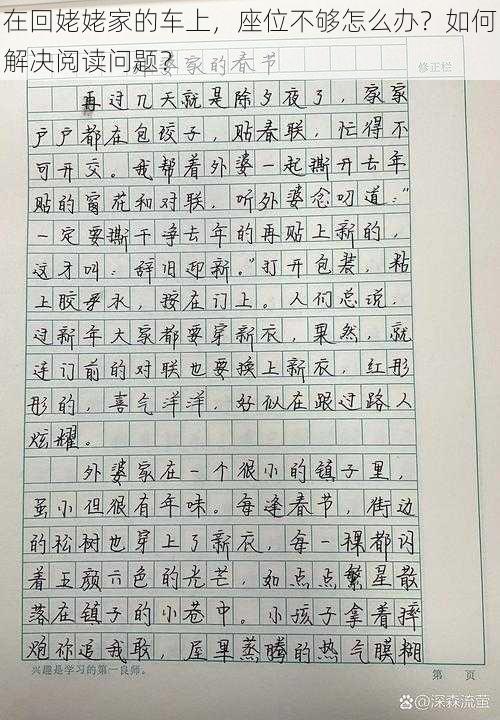 在回姥姥家的车上，座位不够怎么办？如何
解决阅读问题？
外婆家的春节
修正栏
再过几天就是除夕夜了，家家
户户都在包饺子，贴春联，忙得不
可开交。我帮着外婆一起撕开去年
贴的窗花和对联，听外婆念叨道：“
一定要撕干净去年的再贴上新的，
这才叫：辞旧迎新。”打开包装，粘
上胶水，按在门上。人们总说，
过新年大家都要穿新衣，果然，就
连门前的对联也要换上新衣，红彤
彤的，喜气洋洋，好似在跟过路人
炫耀。
外婆家在一个很小的镇子里，
虽小但很有年味。每逢春节，街边
的松树也穿上了新衣，每一棵都闪
着五颜六色的光芒，如点点繁星散
落在镇子的小巷中。小孩子拿着摔
炮你追我敢，屋里蒸腾的热气膜糊
兴趣是学习的第一良师。
第 页
@深森流萤